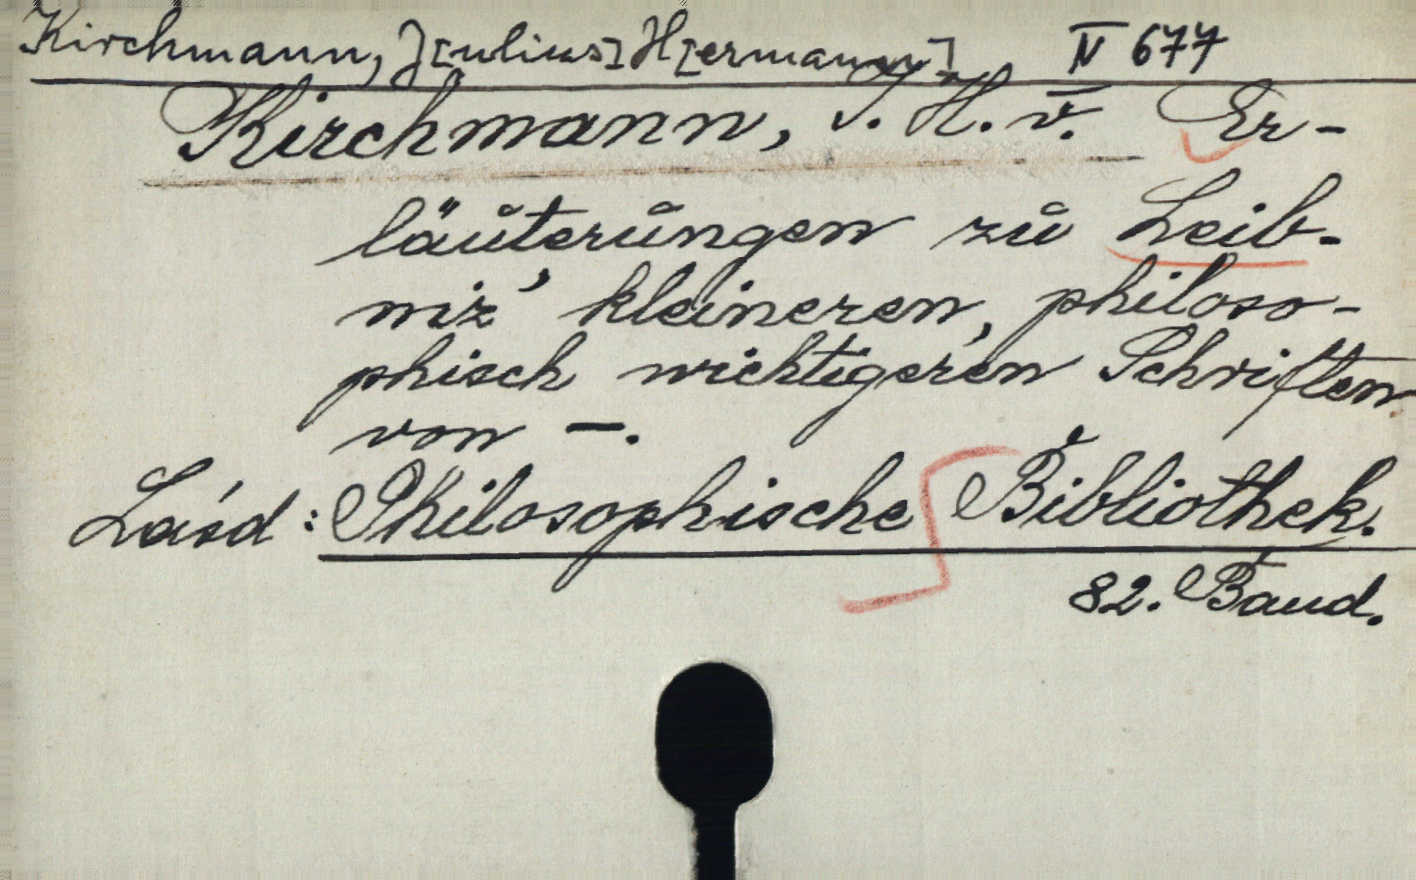 Kirchmann, J[ulius] H[ermann] IV 677
Kirchmann, J. H. v. Er-
läuterungen zu Leib-
niz' kleineren, philoso-
phisch wichtigeren Schriften
von —.
Lásd: Philosophische Bibliothek.
82. Band.